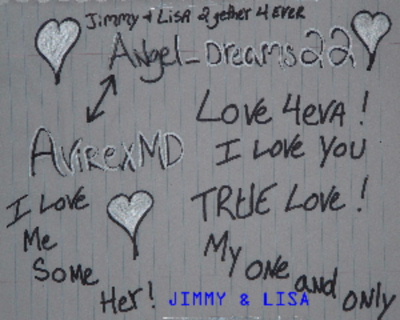 Jimmy + LiSA 2gether 4 EVER
Angel_Dreams22
AvirexMD
Love 4evA!
I Love You
TRUE Love!
My one and only
I Love
Me
Some
Her!
JIMMY & LISA